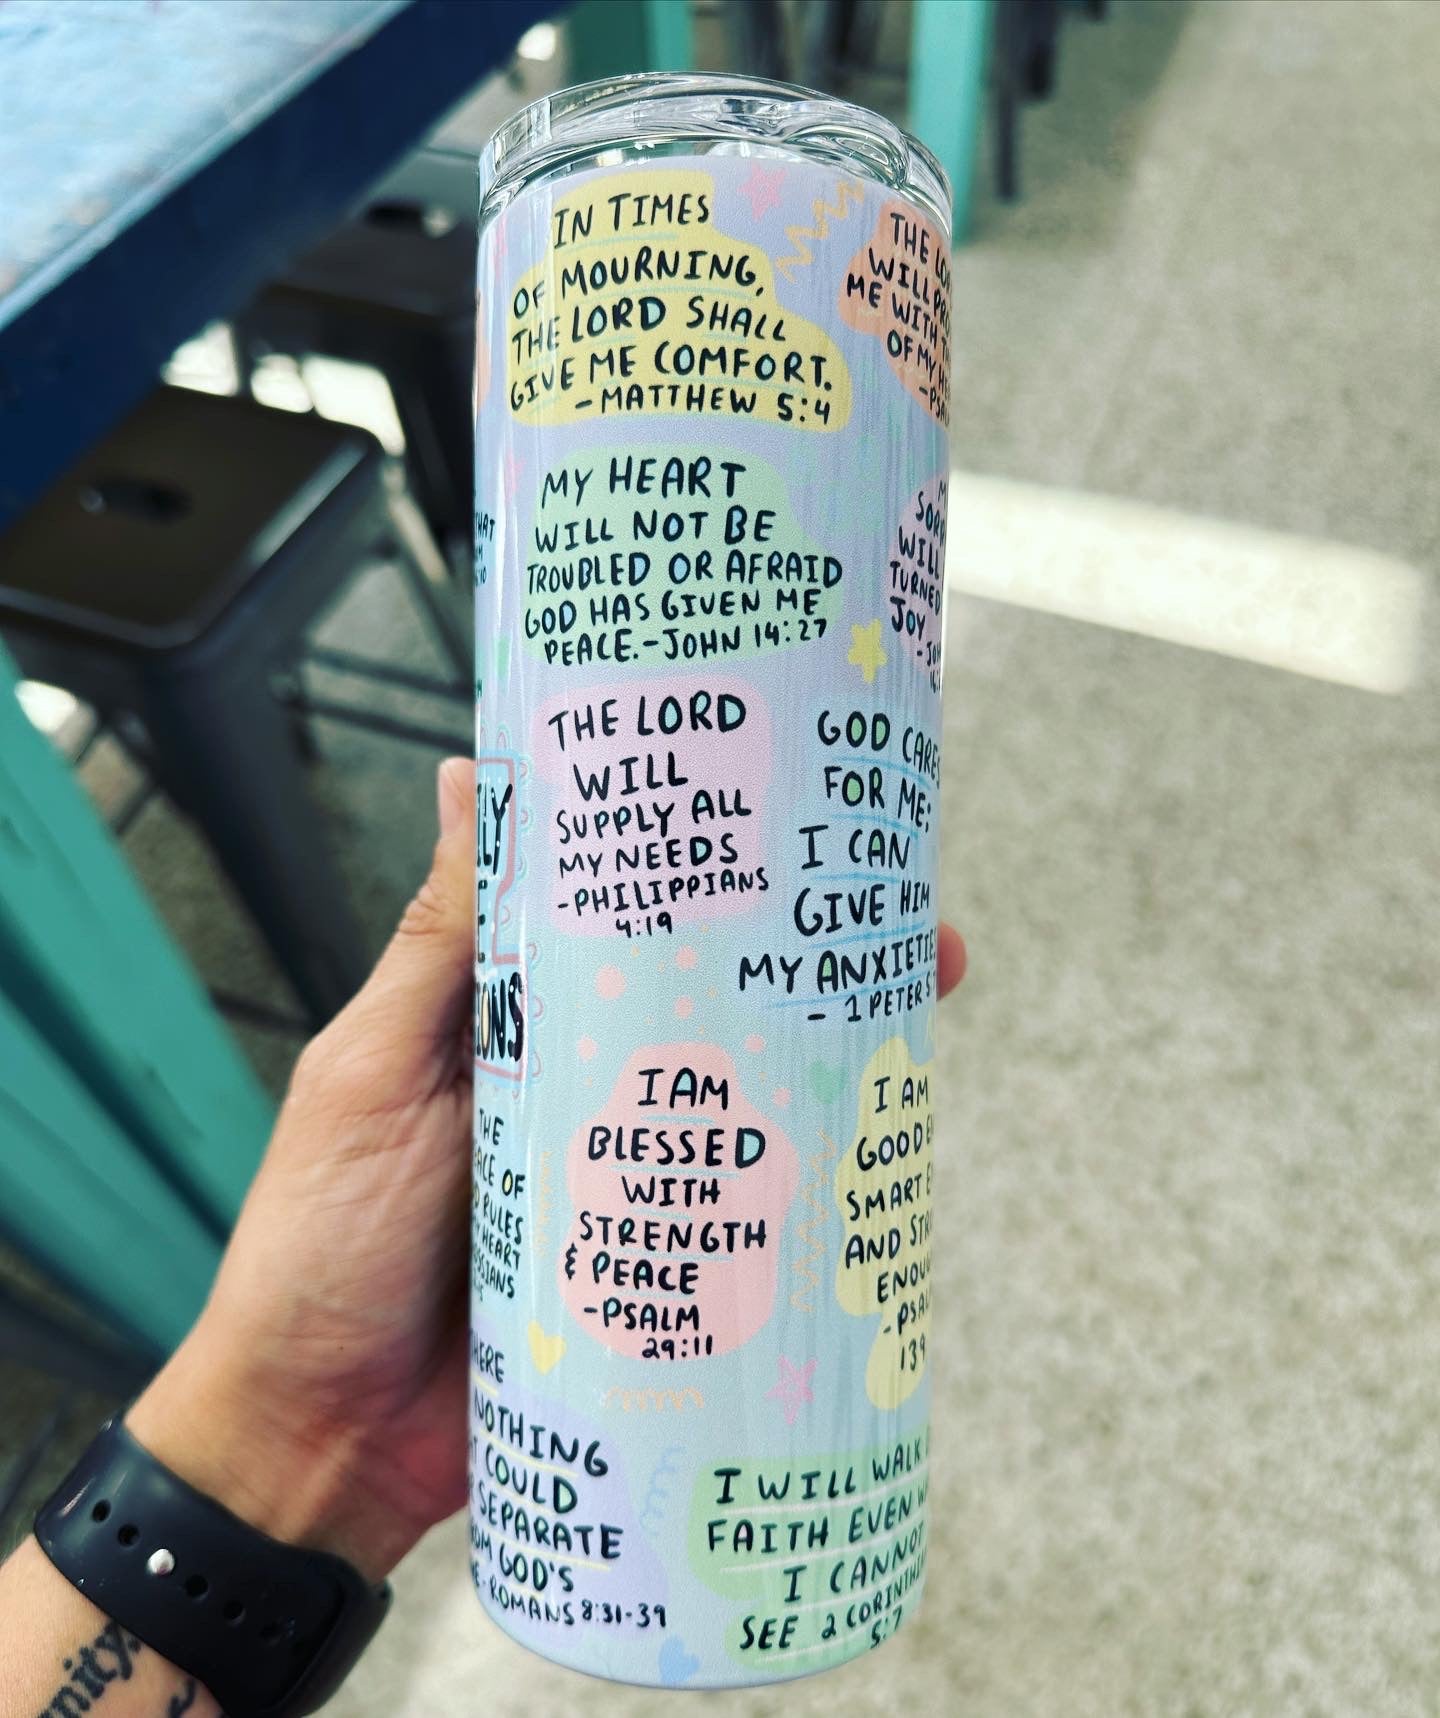 IN TIMES
OF MOURNING,
THE LORD SHALL
GIVE ME COMFORT.
-MATTHEW 5:4
THE
WILL
ME WITH
OF MY
MY HEART
WILL NOT BE
TROUBLED OR AFRAID
GOD HAS GIVEN ME
PEACE.-JOHN 14:27
WILL
TURNED
JOY
THE LORD
WILL
SUPPLY ALL
MY NEEDS
-PHILIPPIANS
4:19
GOD CARES
FOR ME;
I CAN
GIVE HIM
MY ANXIETIE
- 1 PETER 5:7
I AM
BLESSED
WITH
STRENGTH
& PEACE
-PSALM
29:11
I AM
GOOD
SMART
AND
139
THE
OF
RULES
HEART
NOTHING
COULD
SEPARATE
GOD'S
-ROMANS 8:31-39
I WILL WALK
FAITH EVEN
I CANNOT
SEE 2 CORINTHI
5:7